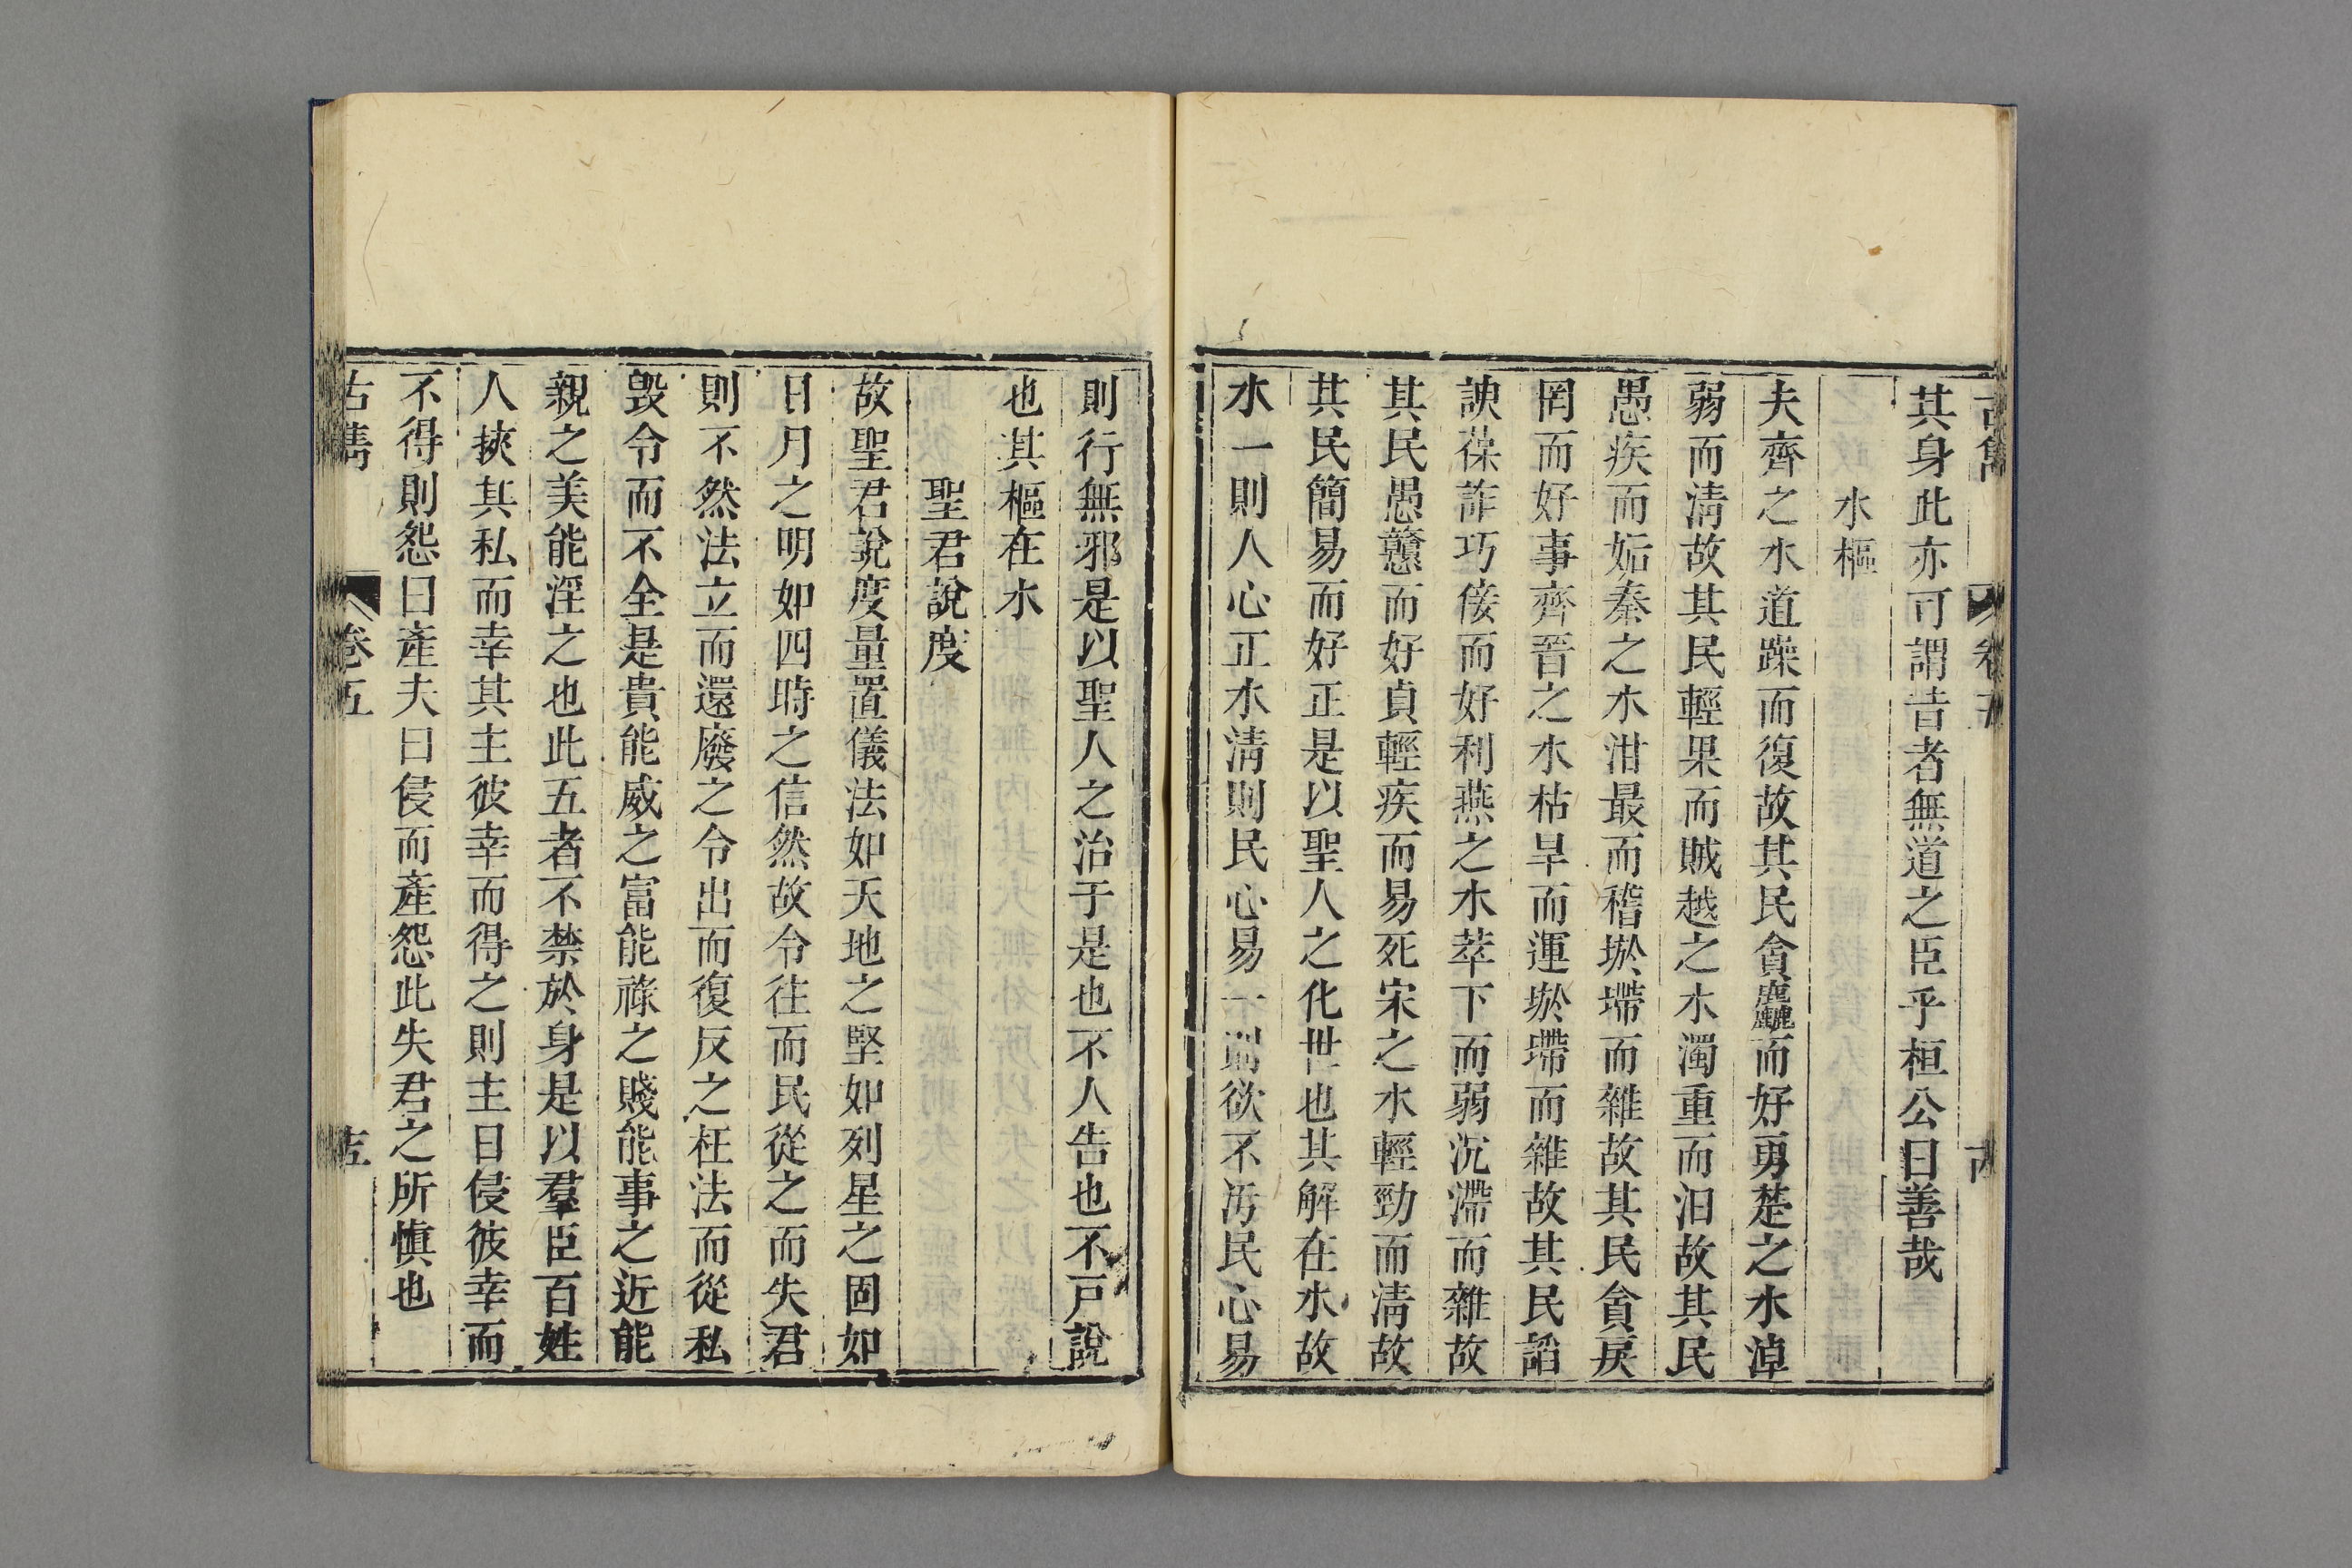 古雋 卷五
其身此亦可謂昔者無道之臣乎桓公曰善哉
水樞
夫齊之水道躁而復故其民貪麤而好勇楚之水淖
弱而淸故其民輕果而賊越之水濁重而洎故其民
愚疾而妬秦之水泔最而稽㳀墆而雜故其民貪戾
罔而好事齊晉之水枯旱而運㳀墆而雜故其民謟
諛葆詐巧佞而好利燕之水萃下而弱沉滯而雜故
其民愚戇而好貞輕疾而易死宋之水輕勁而淸故
其民簡易而好正是以聖人之化世也其解在水故
水一則人心正水淸則民心易一則欲不汚民心易
則行無邪是以聖人之治于是也不人告也不戸說
也其樞在水
聖君說度
故聖君說度量置儀法如天地之堅如列星之固如
日月之明如四時之信然故令往而民從之而失君
則不然法立而還廢之令出而復反之枉法而從私
毀令而不全是貴能威之富能祿之賤能事之近能
親之美能淫之也此五者不禁於身是以羣臣百姓
人挾其私而幸其主彼幸而得之則主日侵彼幸而
不得則怨日產夫日侵而產怨此失君之所愼也
古雋 卷五